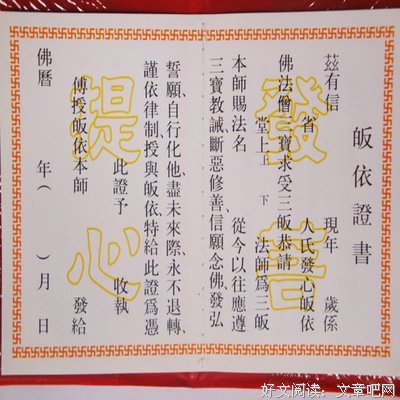 皈依證書
茲有信 現年 歲係
省 人氏發心皈依
佛法僧三寶求受三皈恭請
堂上上 下 法師為三皈
本師賜法名 從今以往應遵
三寶教誡斷惡修善信願念佛發弘
誓願、自行化他、盡未來際、永不退轉、
謹依律制、授與皈依、特給此證為憑
此證予 收執
傳授皈依本師 發給
佛曆 年( )月 日
發菩
提心
好文阅读:文章吧网